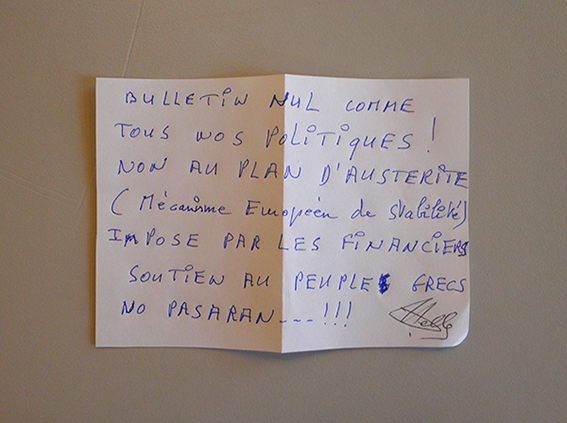 BULLETIN NUL COMME
TOUS NOS POLITIQUES !
NON AU PLAN D'AUSTERITE
(Mécanisme Européen de Stabilité)
IMPOSE PAR LES FINANCIERS
SOUTIEN AU PEUPLE GRECS
NO PASARAN---!!!